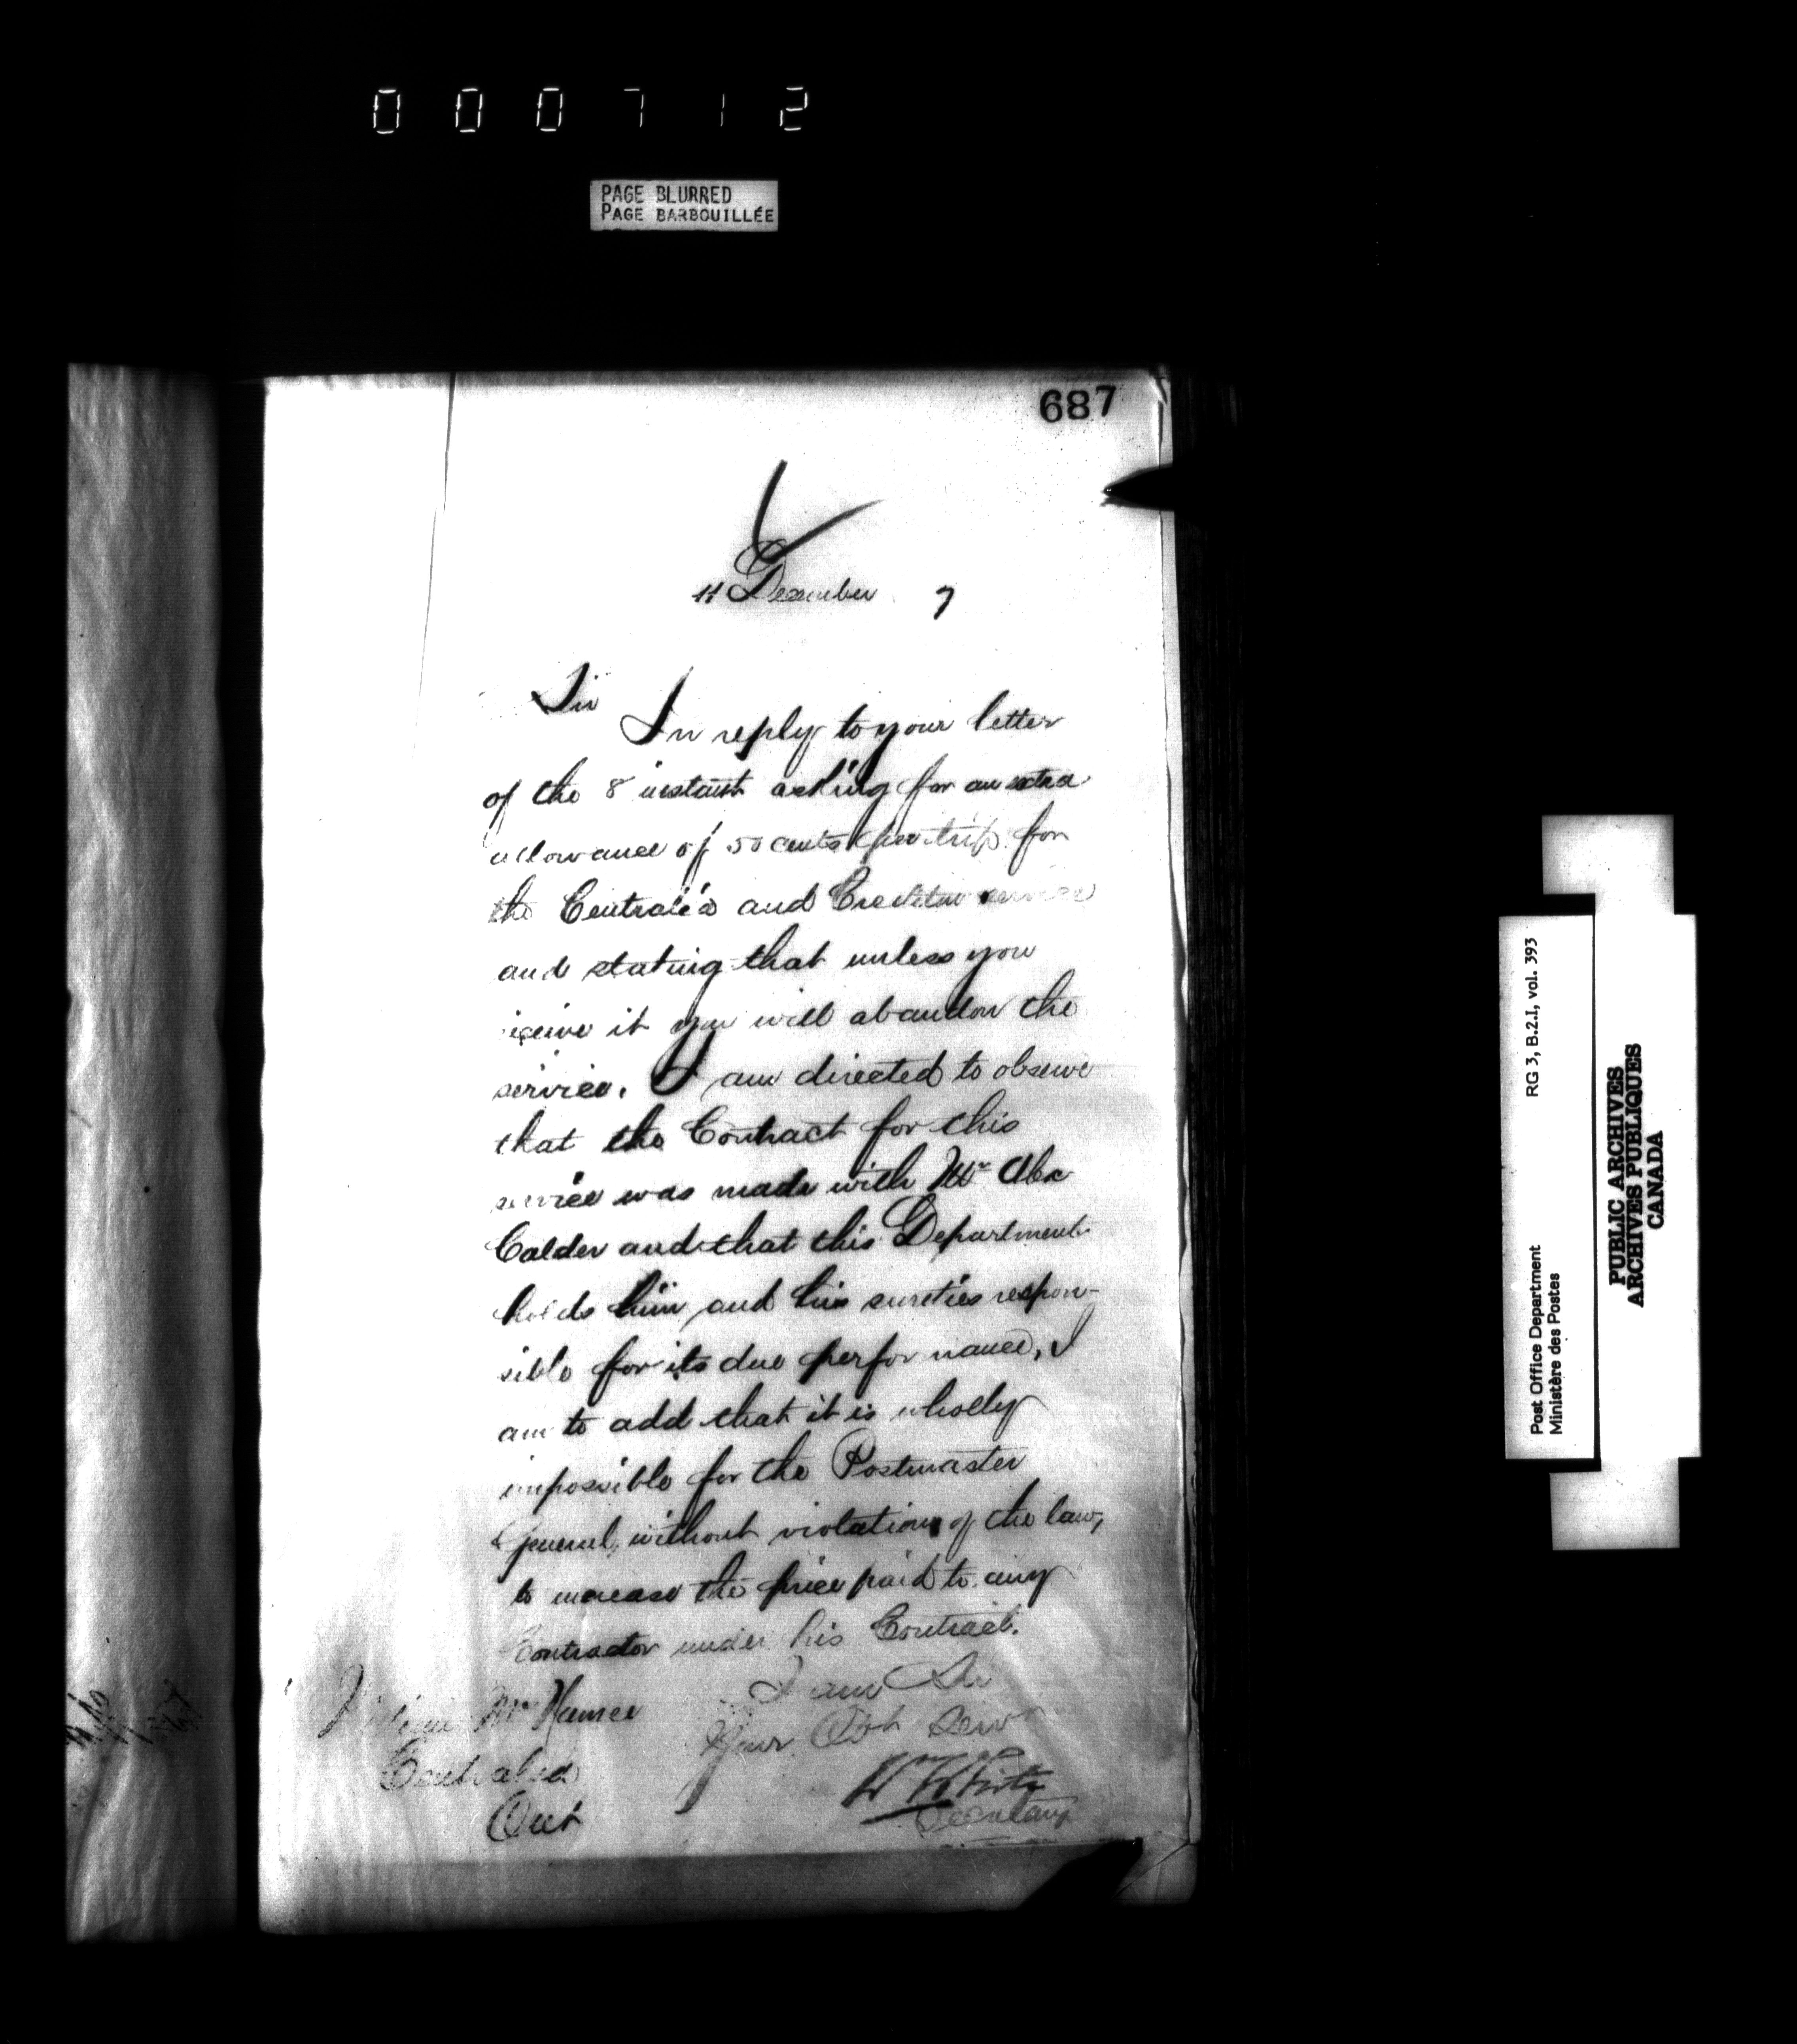 000712
PAGE BLURRED
PAGE BARBOUILLÉE
687
11 December 7
Sir
In reply to your letter
of the 8 instant asking for an extra
allowance of 50 cents per trip for
the Centralia and Crediton service
and stating that unless you
receive it you will abandon the
service. I am directed to observe
that the Contract for this
service was made with Mr Alex
Calder and that this Department
holds him and his sureties respon-
sible for its due performance, I
am to add that it is wholly
impossible for the Postmaster
General, without violation of the law,
to increase the price paid to any
Contractor under his Contract.
I am Sir
Your Obt Servt
W White
Secretary
Mr
Centralia
Ont
RG 3, B.2.I, vol. 393
Post Office Department
Ministère des Postes
PUBLIC ARCHIVES
ARCHIVES PUBLIQUES
CANADA